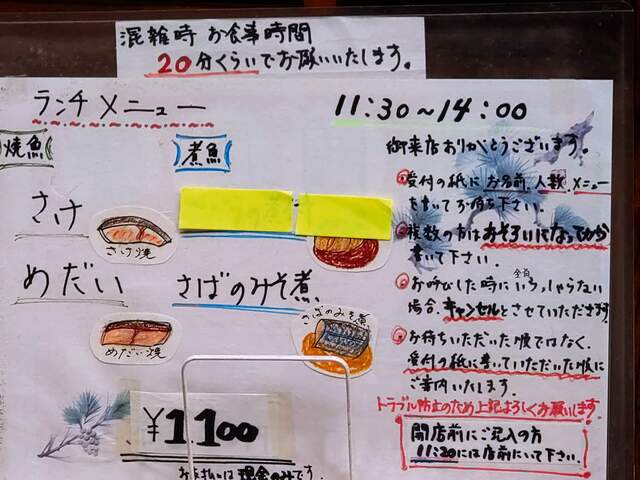 混雑時 お食事時間
20分くらいでお願いいたします。
ランチメニュー
11:30~14:00
焼魚
煮魚
さけ
さけ焼
めだい
めだい焼
さばのみそ煮
さばのみそ煮
¥1.100
お支払いは現金のみです。
御来店ありがとうございます。
◎受付の紙にお名前、人数、メニュー
を書いてお待ち下さい。
◎複数の方はおそろいになってから
書いて下さい。
◎お呼びした時に全員いらっしゃらない
場合、キャンセルとさせていただきます。
◎お待ちいただいた順ではなく、
受付の紙に書いていただいた順に
ご案内いたします。
トラブル防止のため上記よろしくお願いします。
開店前にご記入の方
11:20には店前にいて下さい。